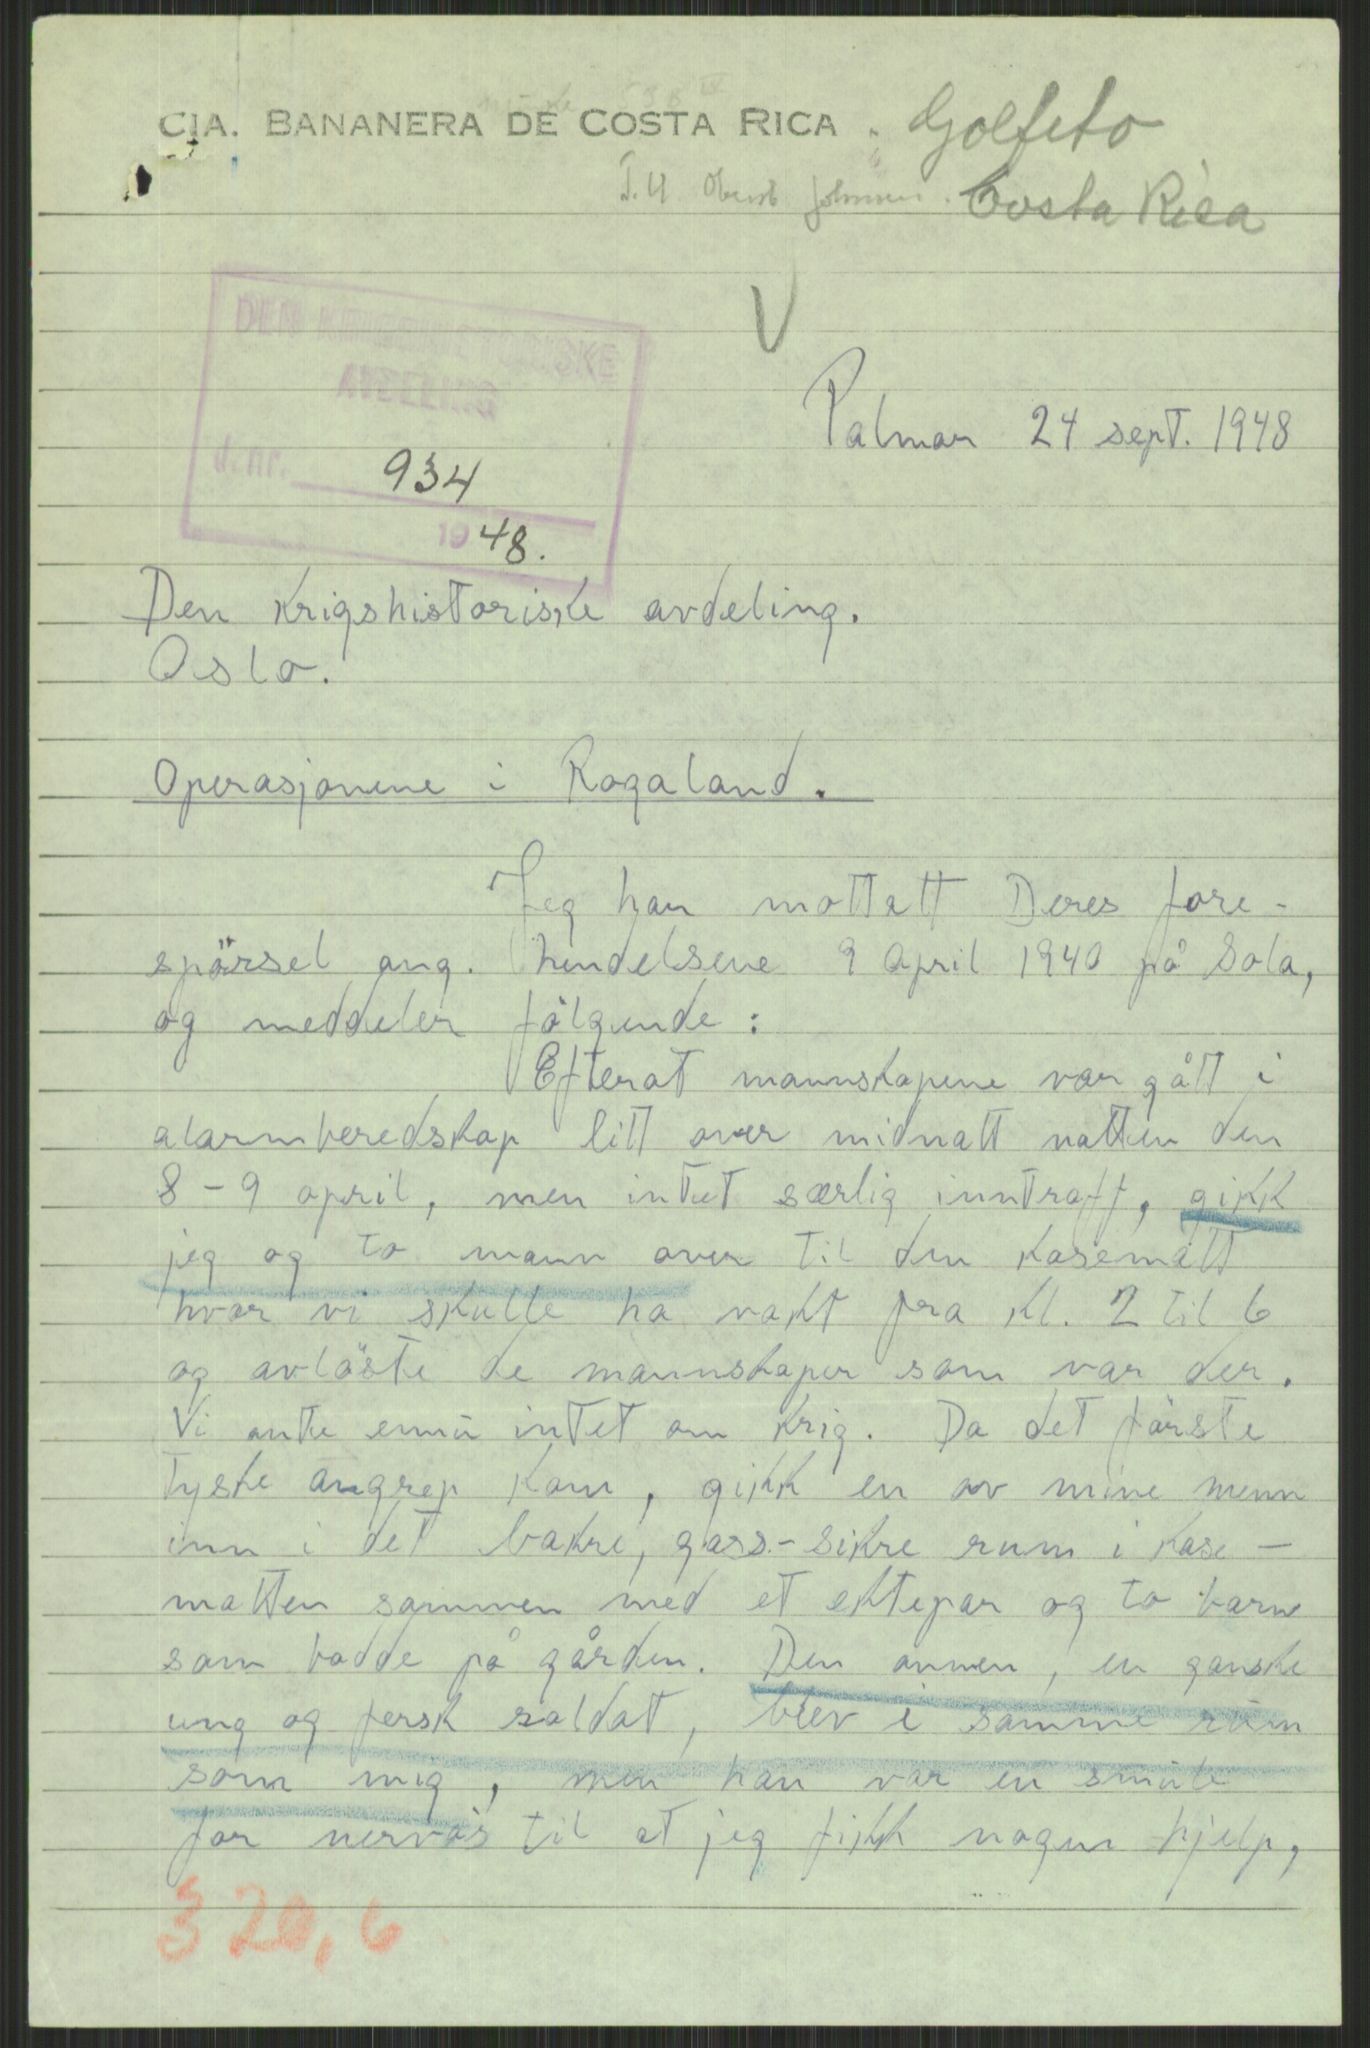 CIA. BANANERA DE COSTA RICA. Golfito
Costa Rica
V
DEN KRIGSHISTORISKE
AVDELING
J.nr. 934
1948.
Palmar 24 sept. 1948
Den Krigshistoriske avdeling.
Oslo.
Operasjonene i Rogaland.
Jeg har mottatt Deres fore-
spörsel ang. hendelsene 9 April 1940 på Sola,
og meddeler fölgende:
Efterat mannskapene var gått i
alarmberedskap litt over midnatt natten den
8-9 april, men intet særlig inntraff, gikk
jeg og to mann over til den kasematt
hvor vi skulle ha vakt fra kl. 2 til 6
og avlöste de mannskaper som var der.
Vi ante ennu intet om krig. Da det förste
tyske angrep kom, gikk en av mine menn
inn i det bakre, gass-sikre rum i kase-
matten sammen med et ektepar og to barn
som bodde på gården. Den annen, en ganske
ung og fersk soldat, blev i samme rum
som mig, men han var en smule
for nervös til at jeg fikk nogen hjelp,
320,6